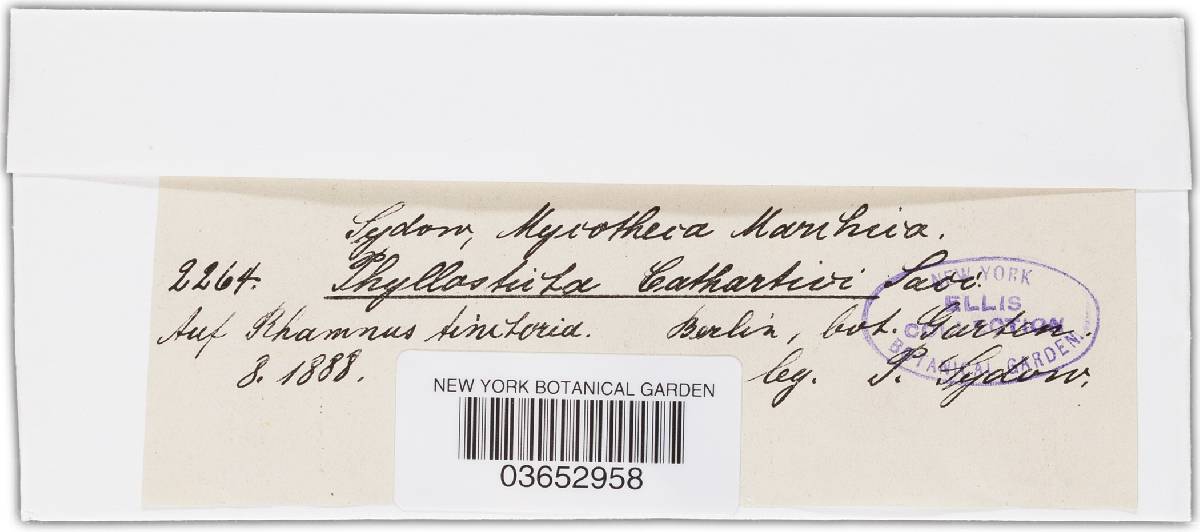 Sydow, Mycotheca Marchica.
2264. Phyllosticta Cathartici Sacc.
Auf Rhamnus tinctoria. Berlin, bot. Garten.
8. 1888. leg. P. Sydow.
NEW YORK
ELLIS
COLLECTION
BOTANICAL GARDEN.
NEW YORK BOTANICAL GARDEN
03652958